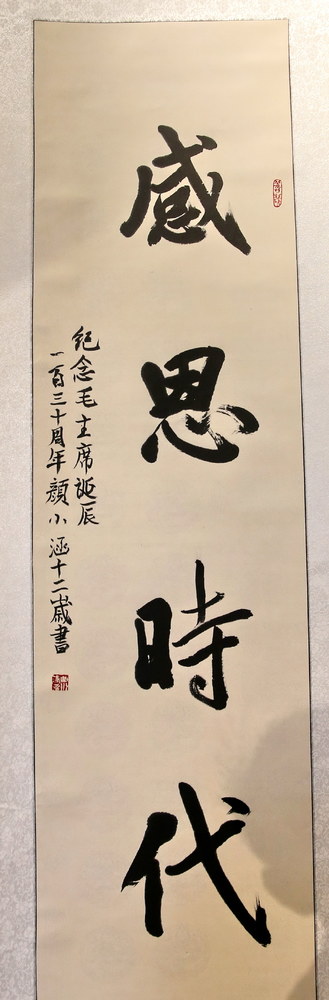 感恩時代
紀念毛主席誕辰
一百三十周年顏小涵十二歲書